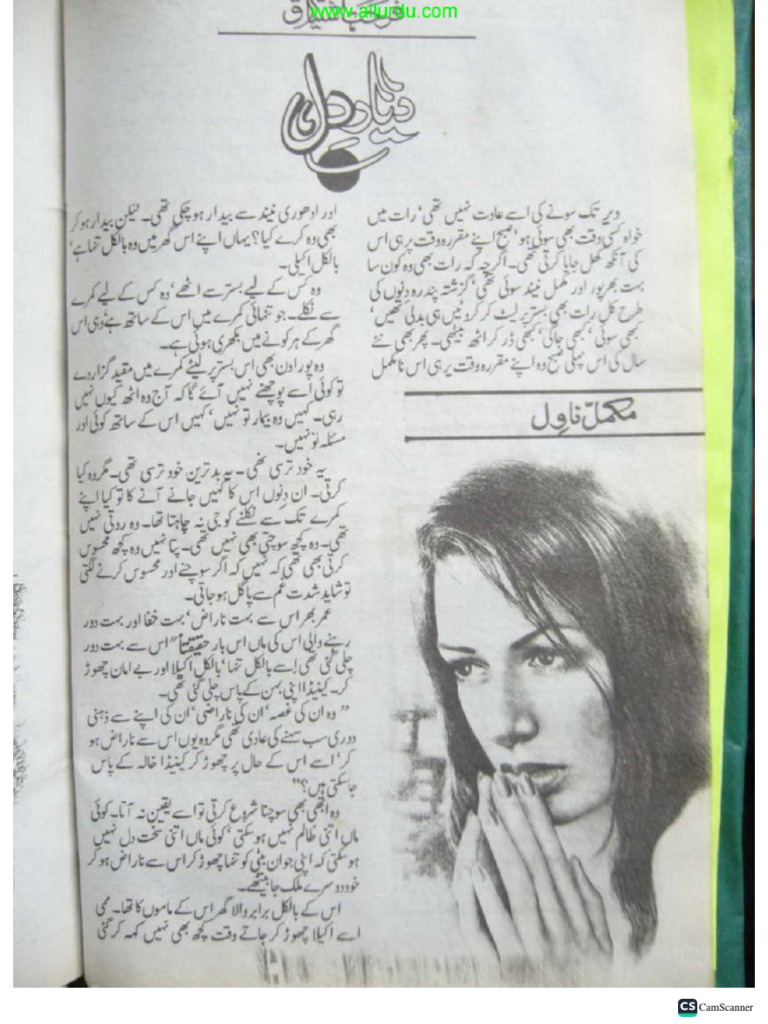 www.allurdu.com
دیارِ دل
دیر تک سونے کی اسے عادت نہیں تھی‘ رات میں
خواہ کسی وقت بھی سوئی ہو‘ صبح اپنے مقررہ وقت پر ہی اس
کی آنکھ کھل جایا کرتی تھی۔ اگرچہ کہ رات بھی وہ کون سا
بہت بھرپور اور مکمل نیند سوئی تھی‘ گزشتہ پندرہ دنوں کی
طرح کل رات بھی بستر پر لیٹ کر کروٹیں ہی بدلی تھیں‘
کبھی سوئی‘ کبھی جاگی‘ کبھی ڈر کر اٹھ بیٹھی۔ پھر بھی نئے
سال کی اس پہلی صبح وہ اپنے مقررہ وقت پر ہی اس نامکمل
مکمل ناول
اور ادھوری نیند سے بیدار ہو چکی تھی۔ لیکن بیدار ہو کر
بھی وہ کرے کیا؟ یہاں اپنے اس گھر میں وہ بالکل تنہا ہے‘
بالکل اکیلی۔
وہ کس کے لیے بستر سے اٹھے‘ وہ کس کے لیے کمرے
سے نکلے۔ جو تنہائی کمرے میں اس کے ساتھ ہے‘ وہی اس
گھر کے ہر کونے میں بکھری ہوئی ہے۔
وہ پورا دن بھی اس بستر پر لیٹے کمرے میں مقید گزار دے
تو کوئی اسے پوچھنے نہیں آئے گا کہ آج وہ اٹھ کیوں نہیں
رہی۔ کہیں وہ بیمار تو نہیں‘ کہیں اس کے ساتھ کوئی اور
مسئلہ تو نہیں۔
یہ خود ترسی تھی۔ یہ بدترین خود ترسی تھی۔ مگر وہ کیا
کرتی۔ ان دنوں اس کا کہیں جانے آنے کا تو کیا اپنے
کمرے تک سے نکلنے کو جی نہ چاہتا تھا۔ وہ روتی نہیں
تھی۔ وہ کچھ سوچتی بھی نہیں تھی۔ پتا نہیں وہ کچھ محسوس
کرتی بھی تھی کہ نہیں کہ اگر سوچنے اور محسوس کرنے لگتی
تو شاید شدت غم سے پاگل ہو جاتی۔
عمر بھر اس سے بہت ناراض‘ بہت خفا اور بہت دور
رہنے والی اس کی ماں اس بار حقیقتاً“ اس سے بہت دور
چلی گئی تھی‘ اسے بالکل تنہا‘ بالکل اکیلا اور بے امان چھوڑ
کر۔ کینیڈا اپنی بہن کے پاس چلی گئی تھی۔
”وہ ان کی غصہ‘ ان کی ناراضی‘ ان کی اپنے سے ذہنی
دوری سب سہنے کی عادی تھی مگر وہ یوں اس سے ناراض ہو
کر‘ اسے اس کے حال پر چھوڑ کر کینیڈا خالہ کے پاس
جا سکتی ہیں؟“
وہ ابھی بھی سوچنا شروع کرتی تو اسے یقین نہ آتا۔ کوئی
ماں اتنی ظالم نہیں ہو سکتی‘ کوئی ماں اتنی سخت دل نہیں
ہو سکتی کہ اپنی جوان بیٹی کو تنہا چھوڑ کر اس سے ناراض ہو کر
خود دوسرے ملک جا بیٹھے۔
اس کے بالکل برابر والا گھر اس کے ماموں کا تھا۔ ممی
اسے اکیلا چھوڑ کر جاتے وقت کچھ بھی نہیں کہہ کر گئی
CS CamScanner